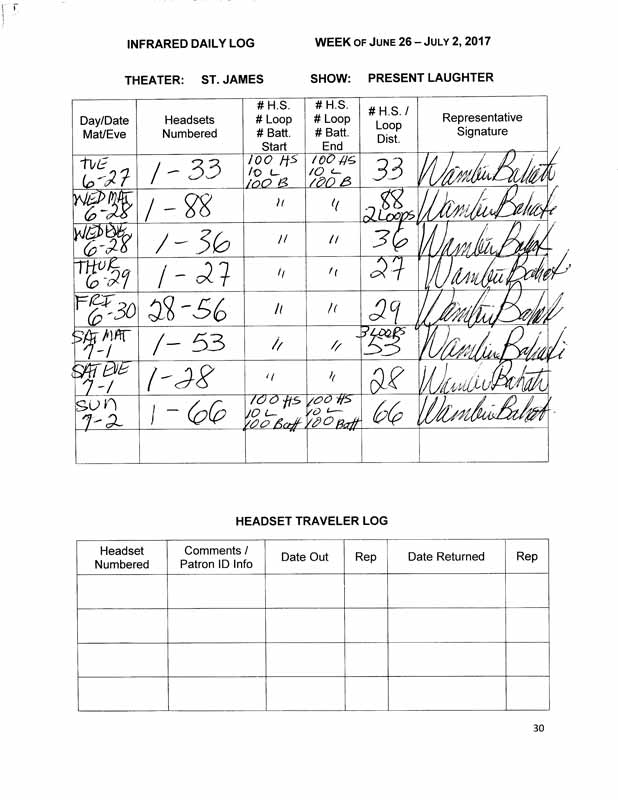 INFRARED DAILY LOG WEEK OF JUNE 26 – JULY 2, 2017
THEATER: ST. JAMES SHOW: PRESENT LAUGHTER
Day/Date Mat/Eve Headsets Numbered # H.S. # Loop # Batt. Start # H.S. # Loop # Batt. End # H.S. / Loop Dist. Representative Signature
TUE 6-27 1-33 100 HS 10 L 100 B 100 HS 10 L 100 B 33 Wambui Bahati
WED MAT 6-28 1-88 " " 88 2 Loops Wambui Bahati
WED EVE 6-28 1-36 " " 36 Wambui Bahati
THUR 6-29 1-27 " " 27 Wambui Bahati
FRI 6-30 28-56 " " 29 Wambui Bahati
SAT MAT 7-1 1-53 " " 3 LOOPS 53 Wambui Bahati
SAT EVE 7-1 1-28 " " 28 Wambui Bahati
SUN 7-2 1-66 100 HS 10 L 100 Batt 100 HS 10 L 100 Batt 66 Wambui Bahati
HEADSET TRAVELER LOG
Headset Numbered Comments / Patron ID Info Date Out Rep Date Returned Rep
30